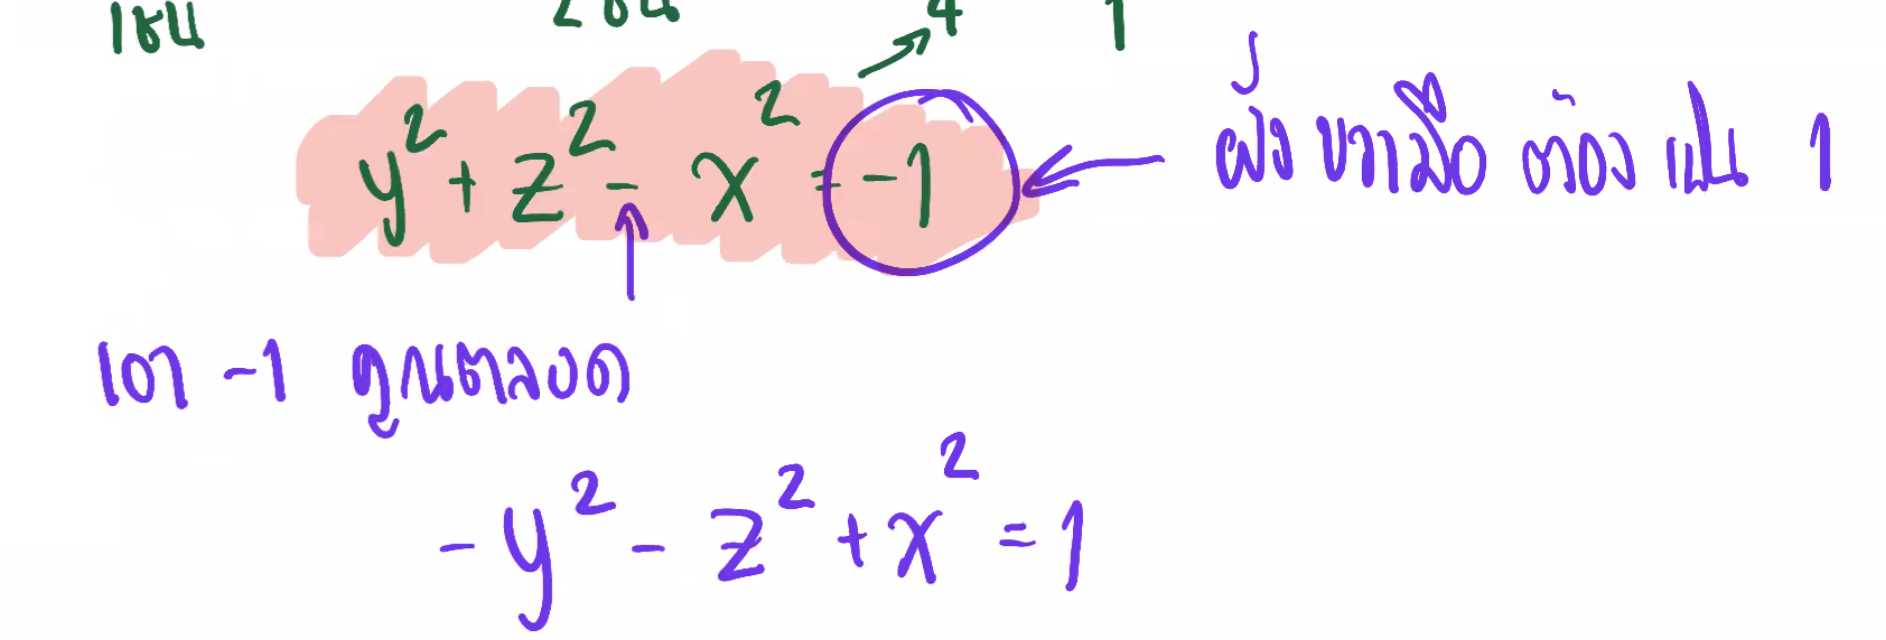 เช่น
4 1
y² + z² - x² = -1
ฝั่ง ขวามือ ต้อง เป็น 1
เอา -1 คูณตลอด
- y² - z² + x² = 1